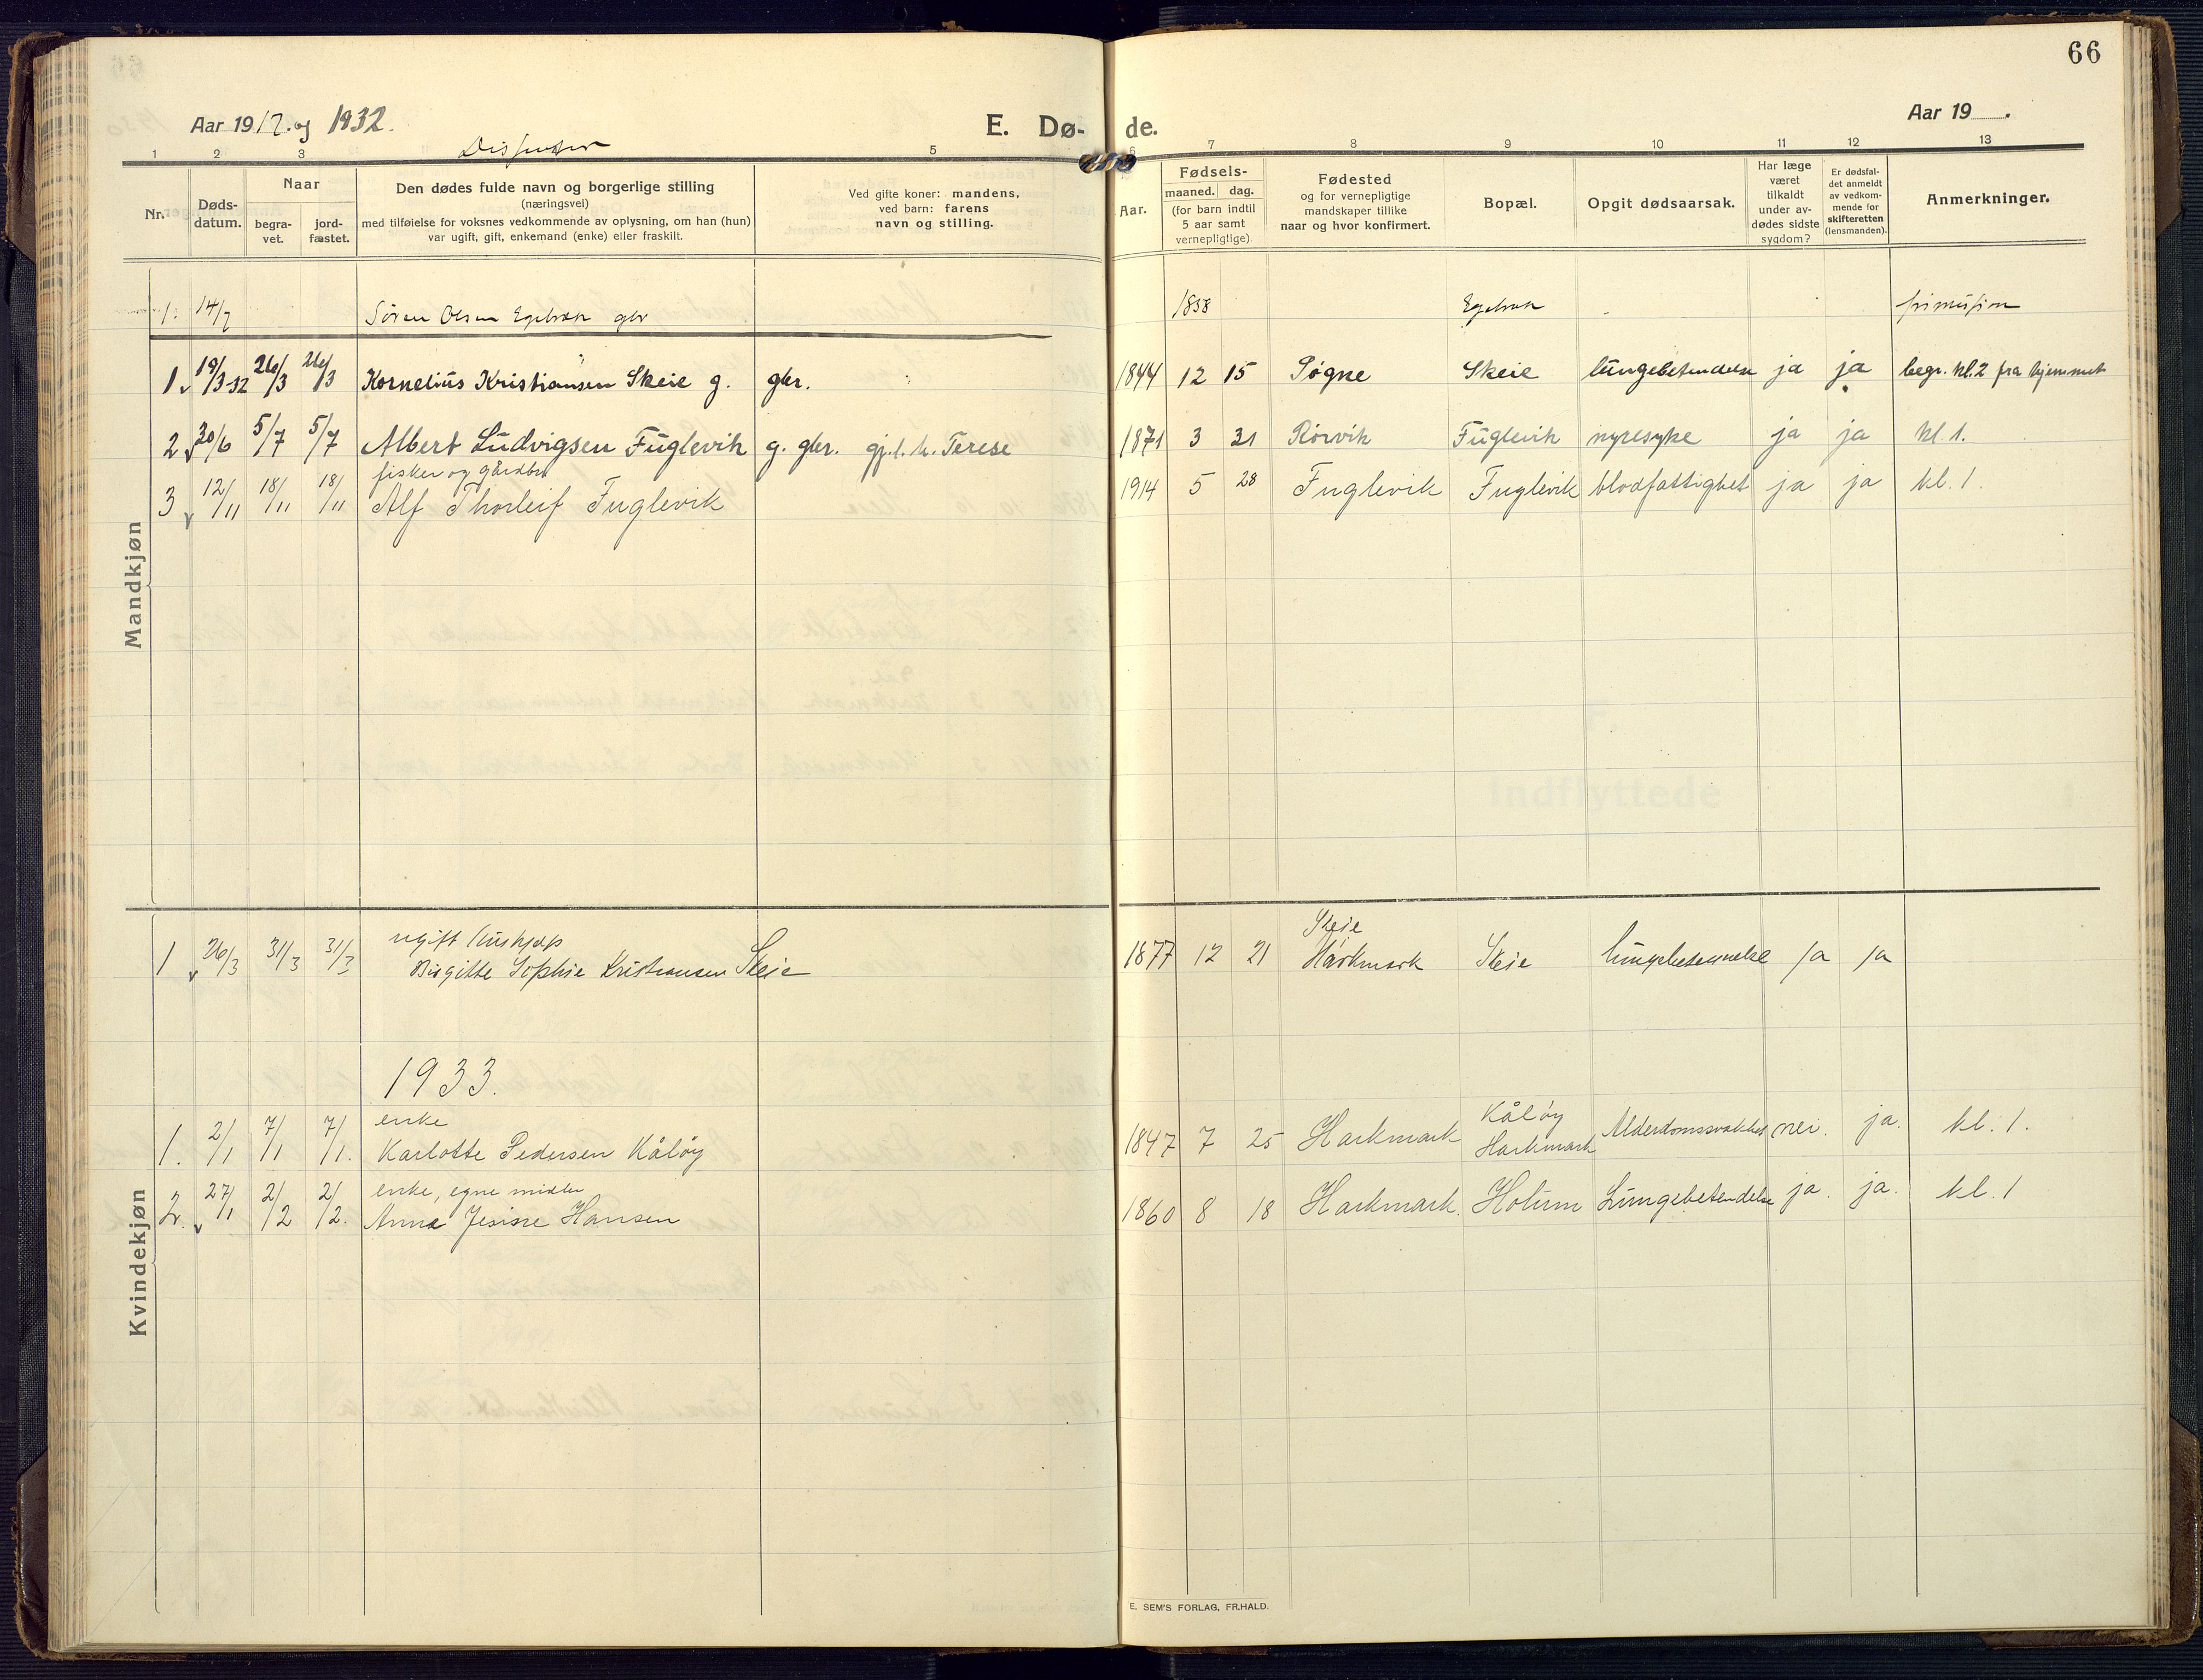 66
Aar 1917. og 1932.
E. Dø- de.
Aar 19 .
1 2 3 5 6 7 8 9 10 11 12 13
Nr.
Døds-
datum.
Naar
begra-
vet.
jord-
fæstet.
Den dødes fulde navn og borgerlige stilling
(næringsvei)
med tilføielse for voksnes vedkommende av oplysning, om han (hun)
var ugift, gift, enkemand (enke) eller fraskilt.
Ved gifte koner: mandens,
ved barn: farens
navn og stilling.
Aar.
Fødsels-
maaned. dag.
(for barn indtil
5 aar samt
vernepligtige).
Fødested
og for vernepligtige
mandskaper tillike
naar og hvor konfirmert.
Bopæl.
Opgit dødsaarsak.
Har læge
været
tilkaldt
under av-
dødes sidste
sygdom?
Er dødsfal-
det anmeldt
av vedkom-
mende for
skifteretten
(lensmanden).
Anmerkninger.
Mandkjøn
1. 14/7 Søren Olsen gbr 1838
1 19/3-32 26/3 26/3 Kornelius Kristiansen Skeie g. gbr. 1844 12 15 Søgne Skeie lungebetendelse ja ja begr. kl. 2 fra hjemmet
2 30/6 5/7 5/7 Albert Ludvigsen Fuglevik g. gbr. gj. l. h. Terese 1871 3 31 Rörvik Fuglevik nyresyke ja ja kl. 1.
fisker og gårdbr
3 12/11 18/11 18/11 Alf Thorleif Fuglevik 1914 5 28 Fuglevik Fuglevik blodfattighet ja ja kl. 1.
Kvindekjøn
ugift Skeie
1 26/3 31/3 31/3 Birgitte Sophie Kristiansen Skeie 1877 12 21 Harkmark Skeie lungebetennelse ja ja
1933.
enke Kålöy
1. 2/1 7/1 7/1. Karlotte Pedersen Kålöy 1847 7 25 Harkmark Harkmark Alderdomssvakhet nei. ja. kl. 1.
enke, egne midler
2. 27/1 2/2 2/2. Anna Jesine Hansen 1860 8 18 Harkmark. Holum Lungebetendelse ja. ja. kl. 1
E. SEM'S FORLAG, FR.HALD.